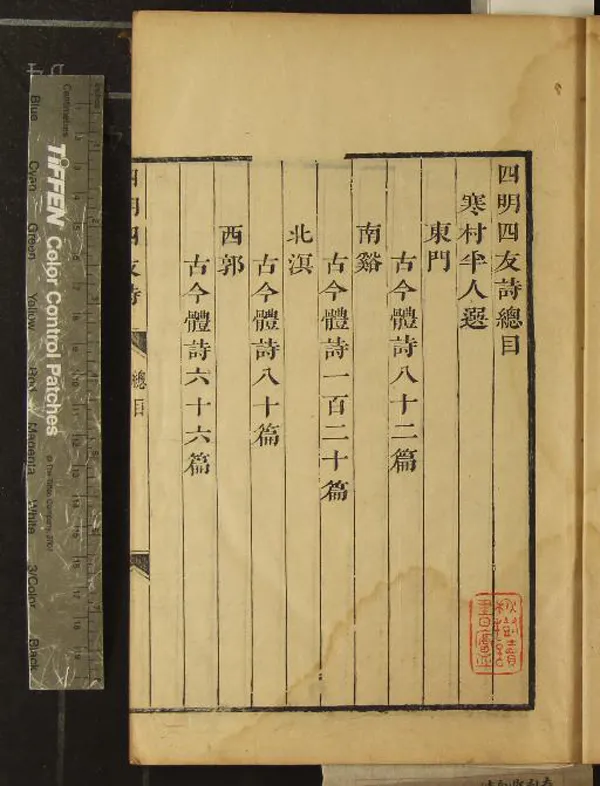 四明四友詩總目
寒村半人選
東門
古今體詩八十二篇
南谿
古今體詩一百二十篇
北溟
古今體詩八十篇
西郭
古今體詩六十六篇
四明四友詩
總目
Inches
Centimetres
TIFFEN Color Control Patches
© The Tiffen Company, 2007
Blue
Cyan
Green
Yellow
Red
Magenta
White
3/Color
Black